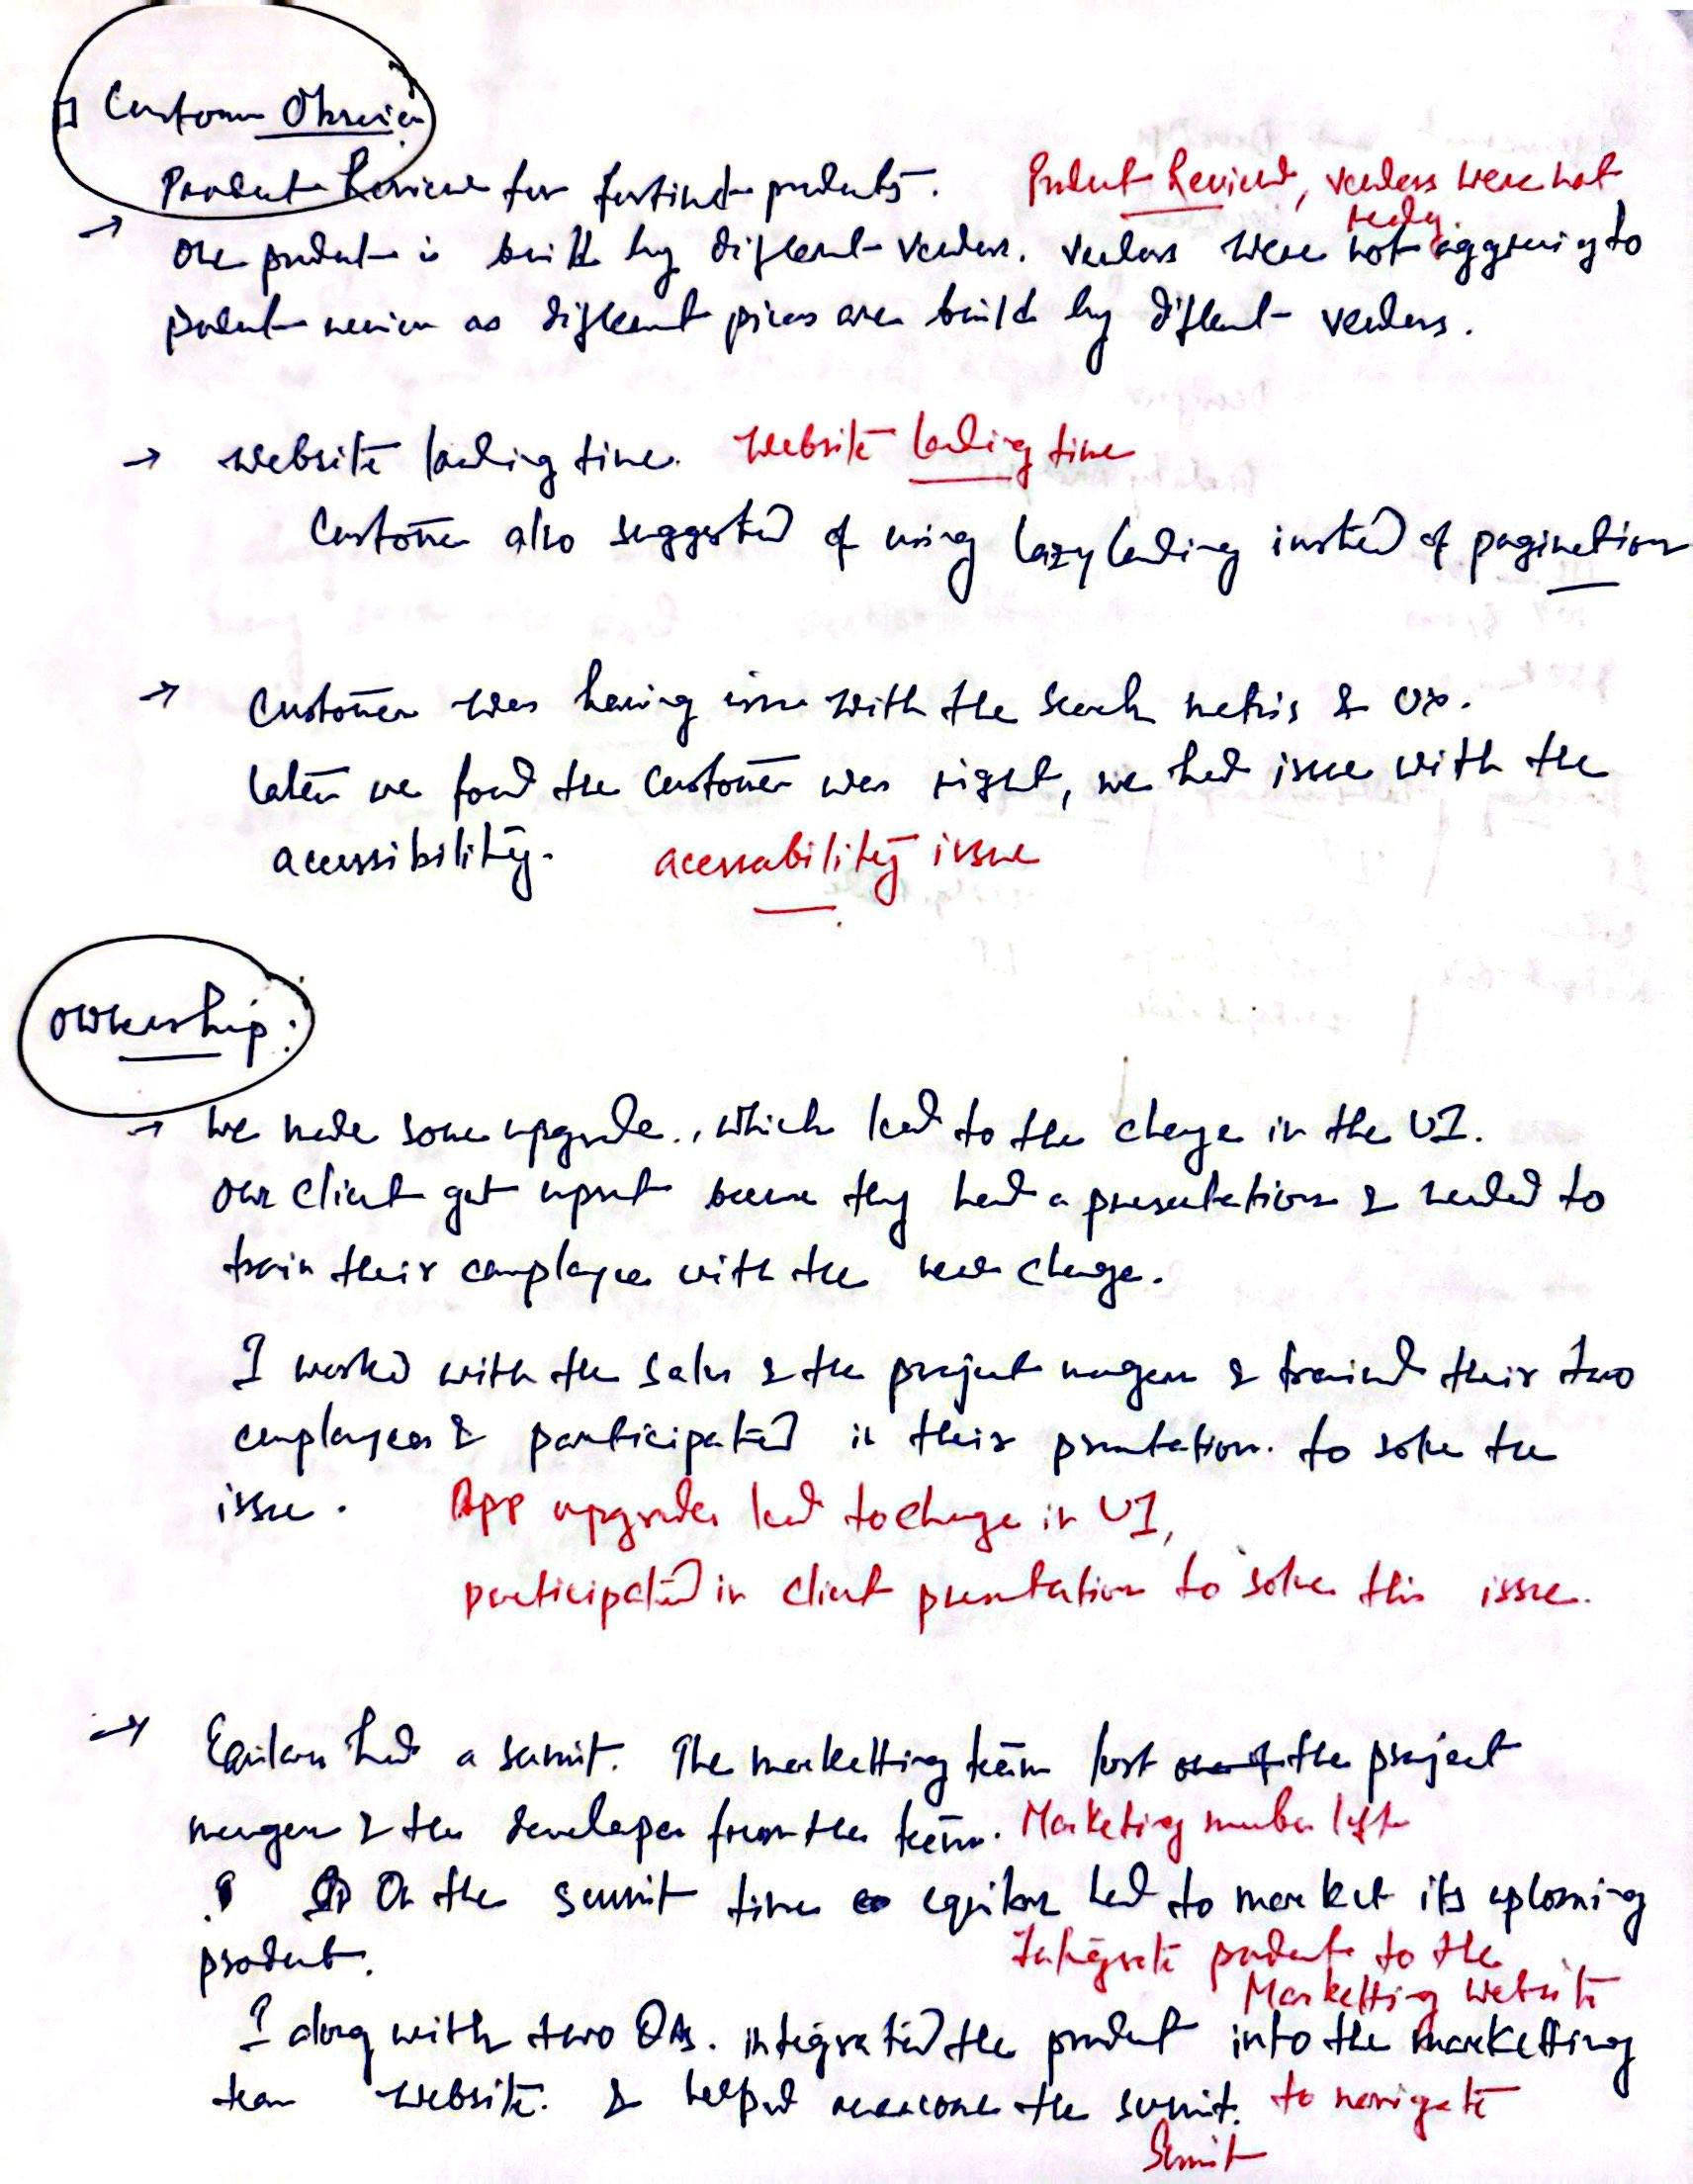 Customer Obsession
Product Review for products. Product Review, vendors were not
ready.
One product is built by different vendors. vendors were not aggreeing to
product review as different pieces are build by different vendors.
→ website loading time. Website loading time
Customer also suggested of using lazy loading insted of pagination
→ Customer was having issue with the search metrics & UX.
later we found the customer was right, we had issue with the
acessibility. acessability issue
Ownership:
→ We made some upgrade, which lead to the change in the UI.
Our client got upset because they had a presentation & needed to
train their employee with the new change.
I worked with the sales & the project manger & trained their two
employees & participated in their presentation. to solve the
issue. App upgrades lead to change in UI,
participated in client presentation to solve this issue.
→ Equilar had a summit. The marketting team lost one of the project
manger & the developer from the team. Marketing member left
On the summit time equilar had to market its upcoming
product. Integrate product to the
Marketting website
I along with two QAs. integrated the product into the marketting
team website. & helped overcome the summit. to navigate
Summit